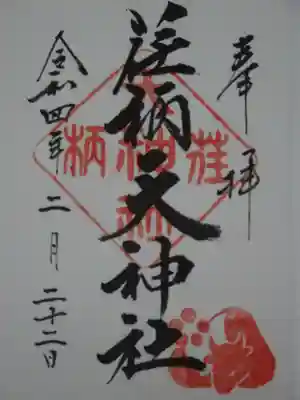 奉拝
荏柄天神社
令和四年二月二十二日
荏柄天神社